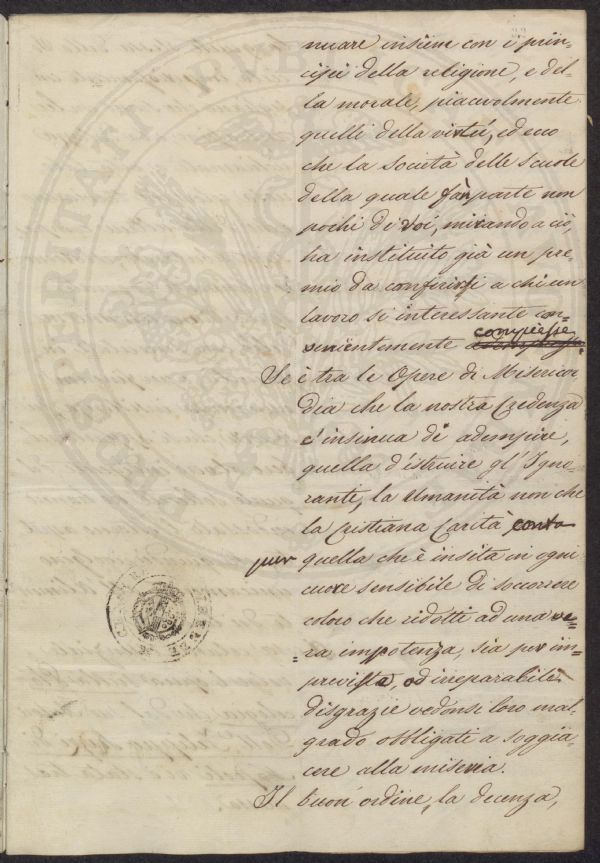 nuare insiem con i prin-
cipii della religione, e del-
la morale, piacevolmente
quelli della virtú, ed ecco
che la Società delle scuole
della quale fan parte non
pochi di voi, mirando a ciò,
ha instituito già un pre-
mio da conferirsi a chi un
lavoro si interessante con-
venientemente compiesse.
Se è tra le Opere di Misericor
dia che la nostra Credenza
c'insinua di adempire,
quella d'istruire gl'Igno
ranti, la Umanità non che
la Cristiana Carità conta
pur quella che è insita in ogni
cuore sensibile di soccorrere
coloro che ridotti ad una ve=
=ra impotenza, sia per im=
previste, od irreparabili
disgrazie vedonsi loro mal
grado obbligati a soggia=
cere alla miseria.
Il buon'ordine, la decenza,
PROSPERITATI PUB